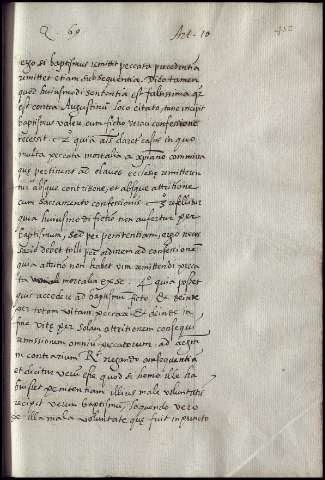 Q. 69 Art. 10 452
ergo si baptismus remittit peccata precedentia
remittet etiam subsequentia. Dico tamen
quod huiusmodi sententia est falsissima qa
est contra Augustinum loco citato, tunc incipit
baptismus valere cum fictio vera confessione
recesit. 2º quia daret casus in quo
multa peccata mortalia a xpiano commissa
que pertinent ad claues ecclesie remitterentur
absque contritione, et absque attritione
cum sacramento confessionis. 3º refellitur
quia huiusmodi fictio non aufertur per
baptismum, sed per penitentiam, ergo
debet tolli per ordinem ad confessionem
quia attritio non habet vim remittendi pecca
ta mortalia ex se. 4º quia posset
quis accedere ad baptismum ficte, et deinde
per totam vitam peccare et deinde in
fine vite per solam attritionem consequi
remissionem omnium peccatorum. ad
in contrarium Rº negando consequentiam
et dicitur verum esse quod si homo ille ha
buisset penitentiam illius male voluntatis
recipit verum baptismum, loquendo vero
de illa mala voluntate que fuit in puncto